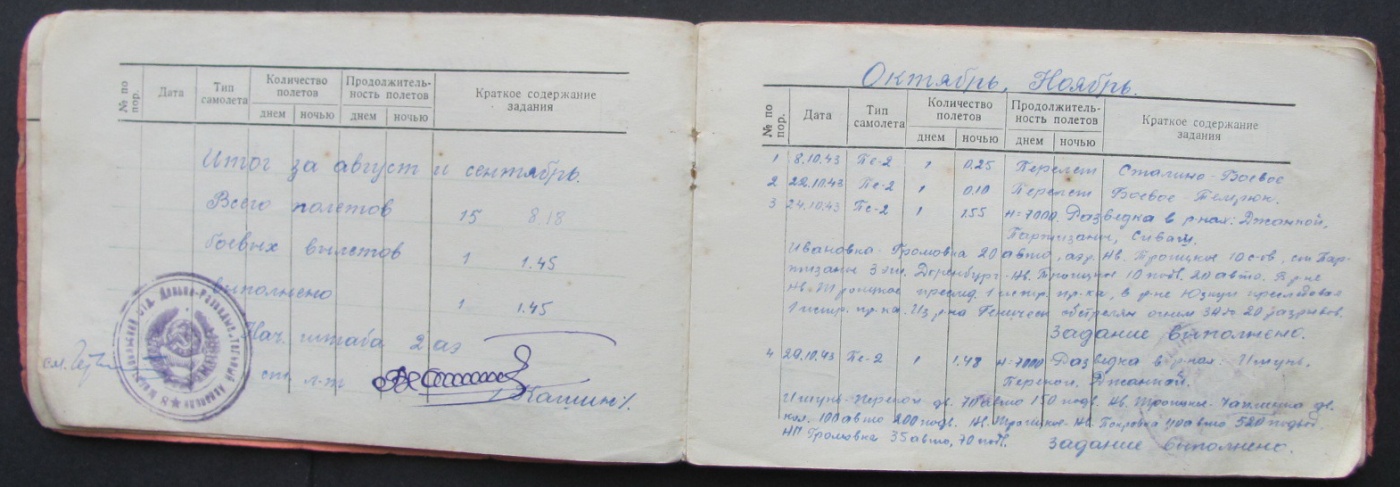 № по пор. Дата Тип самолета Количество полетов днем ночью Продолжитель-ность полетов днем ночью Краткое содержание задания
Итог за август и сентябрь.
Всего полетов 15 8 18
боевых вылетов 1 1.45
выполнено 1 1.45
Нач. штаба 2 аэ
ст. л-т /Кашин/.
Октябрь, Ноябрь.
№ по пор. Дата Тип самолета Количество полетов днем ночью Продолжитель-ность полетов днем ночью Краткое содержание задания
1 8.10.43 Пе-2 1 0.25 Перелет Сталино-Боевое
2 22.10.43 Пе-2 1 0.10 Перелет Боевое
3 24.10.43 Пе-2 1 1.55 Н=7000. Разведка в р-нах: Джанкой,
Партизаны, Сиваш.
Ивановка-Громовка 20 авто, аэр. Нв. Троицкое 10 с-ов, ст. Пар-
тизаны 3 эш. Нв. Троицкое 10 подв. 20 авто. В р-не
Нв. Троицкое 1 истр. пр-ка, в р-не преследовал
1 истр. пр-ка. Из р-на Геническ обстрелян огнем ЗА 20 разрывов.
Задание выполнено.
4 29.10.43 Пе-2 1 1.48 Н=7000 Разведка в р-нах: Ишунь,
Перекоп, Джанкой.
Ишунь-Перекоп дв. 70 авто 150 подв. Нв. Троицкое-Чаплинка дв.
кол. 100 авто 200 подв. Нв. Троицкое-Нв. Покровка 40 авто 520 подвод.
НП Громовка 35 авто, 70 подв. Задание выполнено.